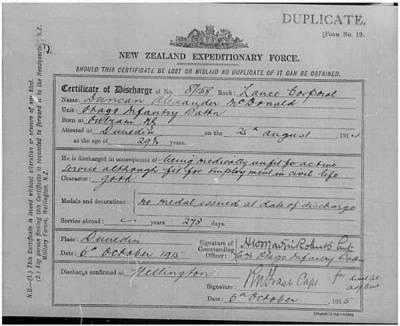 DUPLICATE.
[FORM No. 19.
NEW ZEALAND EXPEDITIONARY FORCE.
SHOULD THIS CERTIFICATE BE LOST OR MISLAID NO DUPLICATE OF IT CAN BE OBTAINED.
Certificate of Discharge of No. 8/58 Rank: Lance Corporal
Name: Duncan Alexander McDonald
Otago Infantry Battn
Born at Outram NZ
Attested at Dunedin on the 25th August 191
at the age of 29 years.
He is discharged in consequence of being medically unfit for active
service although fit for employment in civil life
Character: good
Medals and decorations: no medal issued at date of discharge
Service abroad: years 273 days.
Place: Dunedin
Signature of
Commanding
Officer:
Date: 6th October 1915
Otago Infantry Battn
Discharge confirmed at Wellington
Signature: Capt. for
Date: 6th October 1915
N.B.—(1.) This Certificate is issued without alteration or erasure of any kind.
(2.) Any person finding this Certificate is requested to forward it to the Headquarters, N.Z.
Military Forces, Wellington, N.Z.